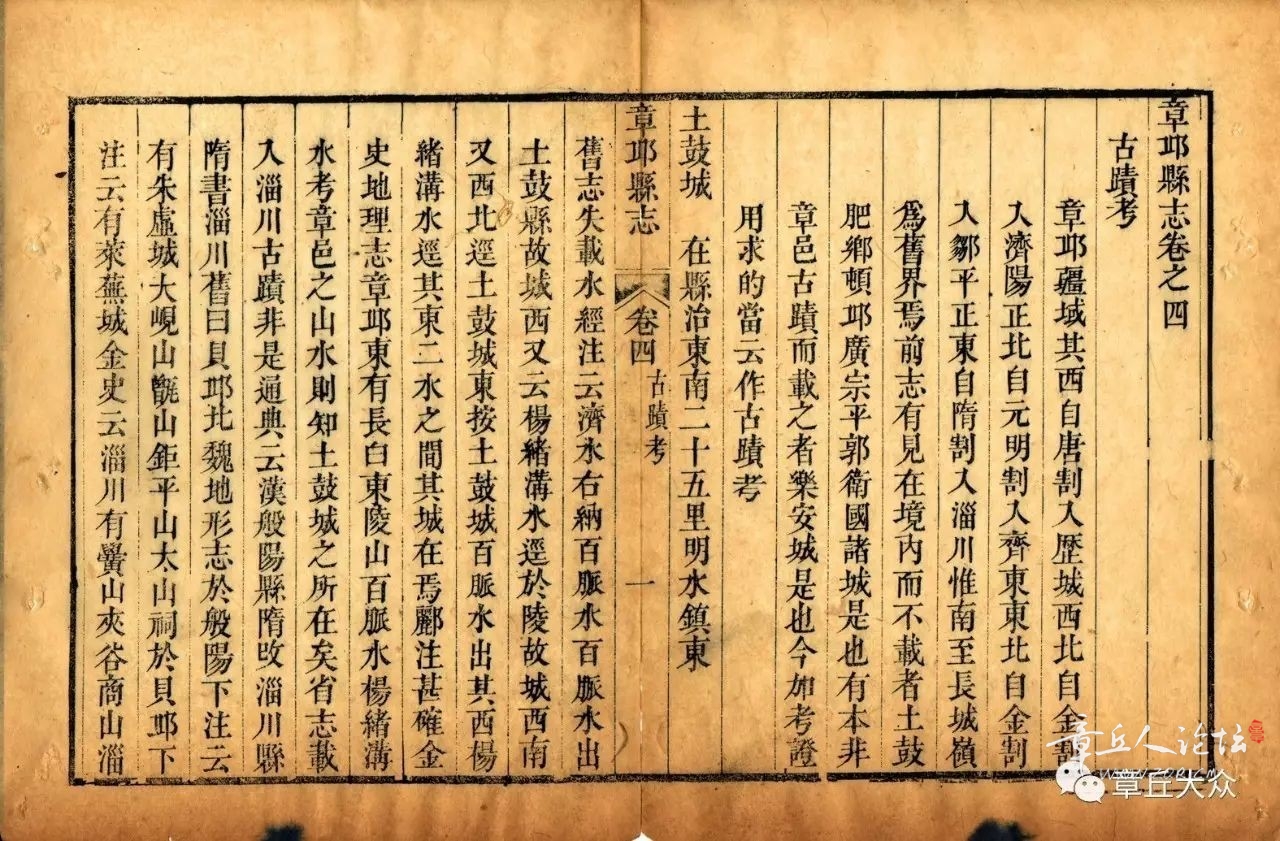 章邱縣志卷之四
古蹟考
章邱疆域其西自唐割入歷城西北自金割
入濟陽正北自元明割入齊東東北自金割
入鄒平正東自隋割入淄川惟南至長城嶺
爲舊界焉前志有見在境內而不載者土鼓
肥鄉頓邱廣宗平郭衛國諸城是也有本非
章邑古蹟而載之者樂安城是也今加考證
用求的當云作古蹟考
土鼓城 在縣治東南二十五里明水鎮東
章邱縣志 卷四 古蹟考 一
舊志失載水經注云濟水右納百脈水百脈水出
土鼓縣故城西又云楊緒溝水逕於陵故城西南
又西北逕土鼓城東按土鼓城百脈水出其西楊
緒溝水逕其東二水之間其城在焉酈注甚確金
史地理志章邱東有長白東陵山百脈水楊緒溝
水考章邑之山水則知土鼓城之所在矣省志載
入淄川古蹟非是通典云漢般陽縣隋改淄川縣
隋書淄川舊曰貝邱北魏地形志於般陽下注云
有朱虛城大峴山甑山鉅平山太山祠於貝邱下
注云有萊蕪城金史云淄川有黌山夾谷商山淄
章丘人论坛
章丘大众